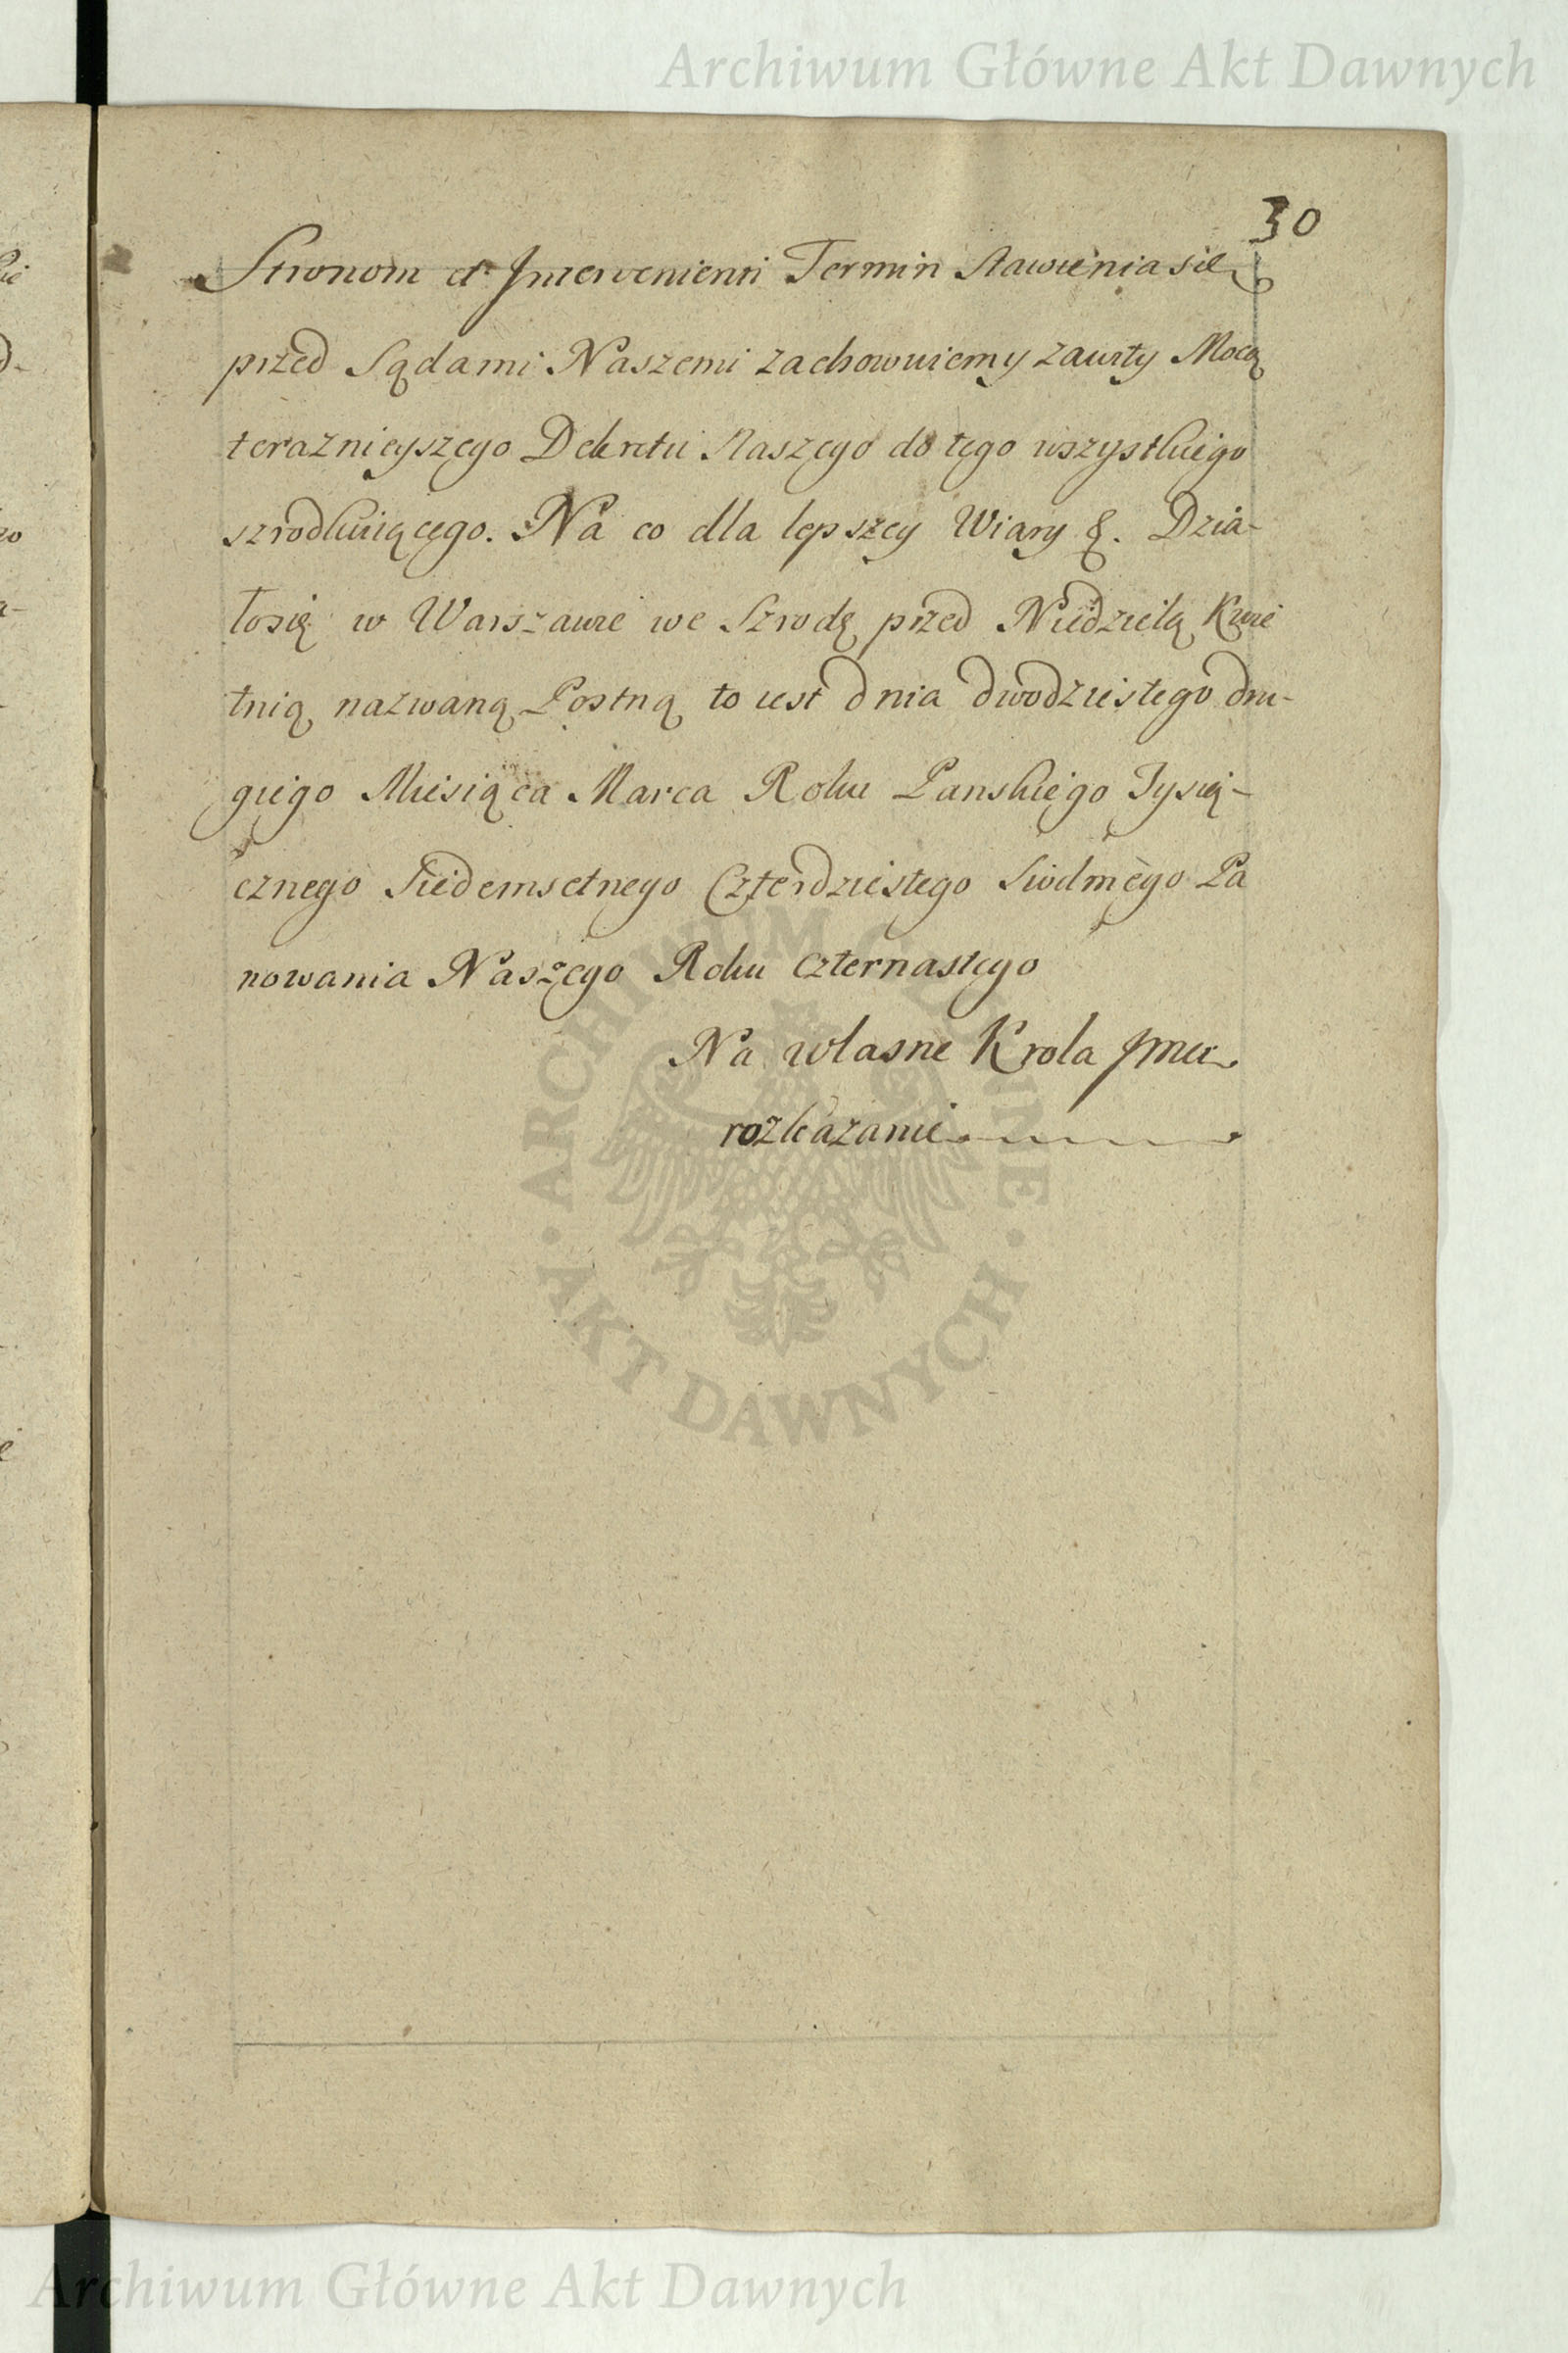 Archiwum Główne Akt Dawnych
30
Stronom et Intervenienti Termin stawienia się
przed Sądami Naszemi zachowuiemy zawity Mocą
teraznieyszego Dekretu Naszego do tego wszystkiego
szrodkuiącego. Na co dla lepszey Wiary &. Dzia-
łosię w Warszawie we Szrodę przed Niedzielą Kwie
tnią nazwaną Postną to iest dnia dwodziestego dru-
giego Miesiąca Marca Roku Panskiego Tysią-
cznego Siedemsetnego Czterdziestego Siodmego Pa
nowania Naszego Roku czternastego
Na własne Krola Jmci
rozkazanie
ARCHIWUM GŁÓWNE
AKT DAWNYCH
Archiwum Główne Akt Dawnych